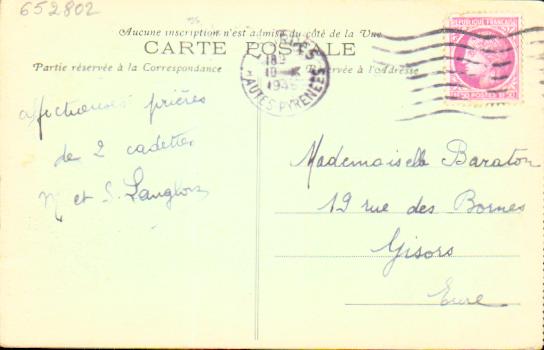 652802
Aucune inscription n'est admise du côté de la Vue
CARTE POSTALE
Partie réservée à la Correspondance
Réservée à l'Adresse
18H
10
1946
HAUTES-PYRENEES
REPUBLIQUE FRANÇAISE
affectueuses prières
de 2 cadettes
M et S. Langlois
Mademoiselle Baraton
19 rue des Bornes
Gisors
Eure